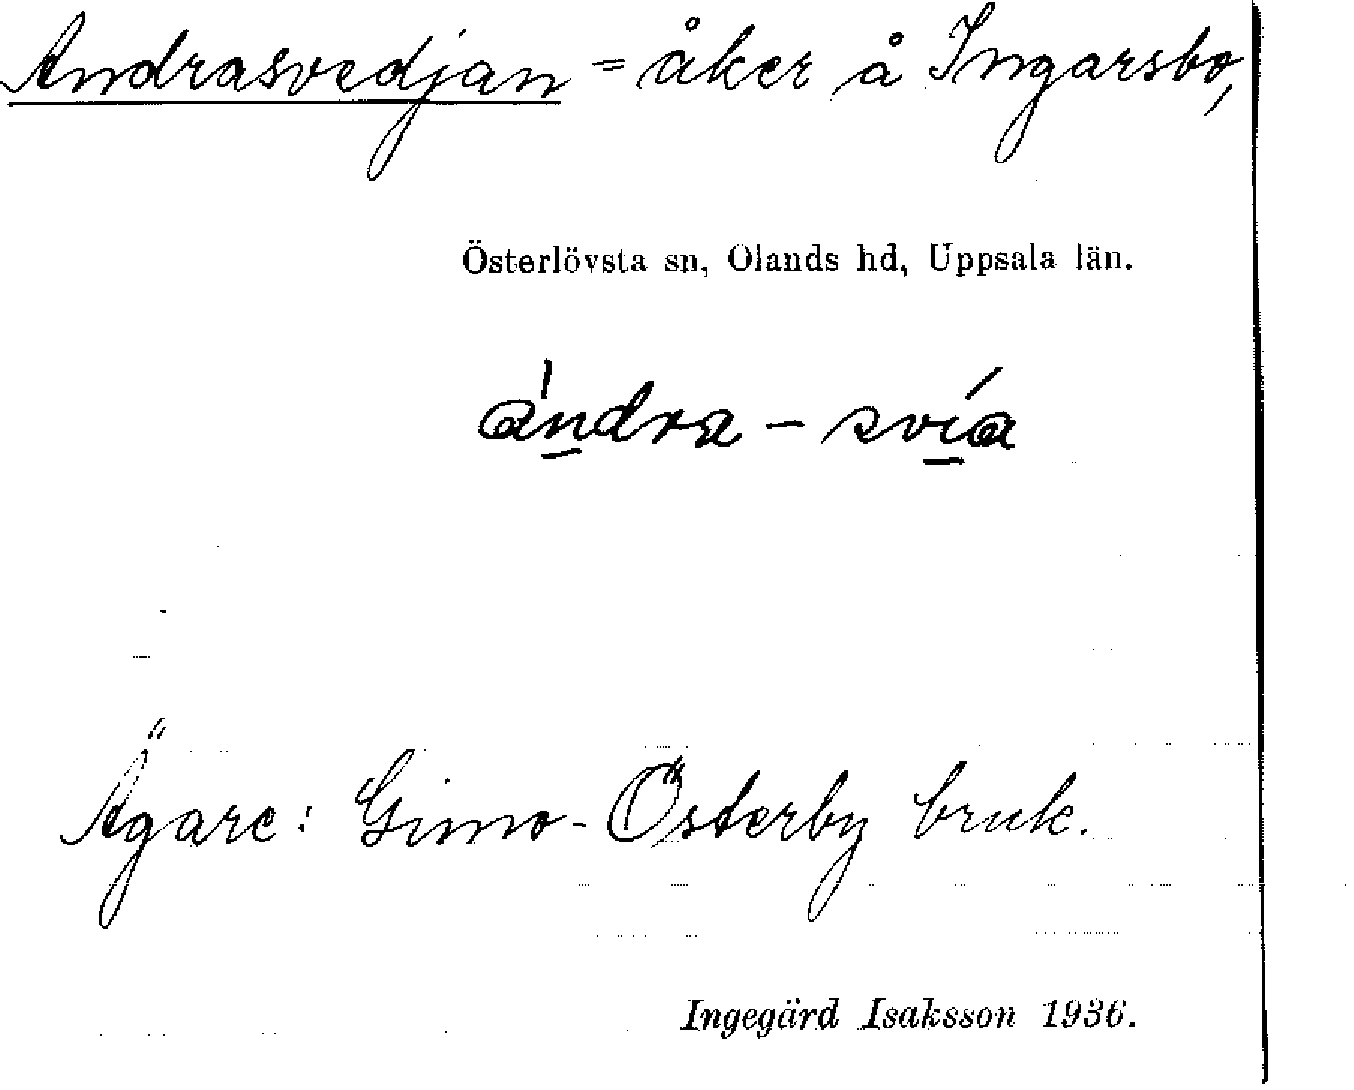 Andrasvedjan = åker å Ingarsbo,
Österlövsta sn, Olands hd, Uppsala län.
ándra - svía
Ägare: Gimo-Österby bruk.
Ingegärd Isaksson 1936.